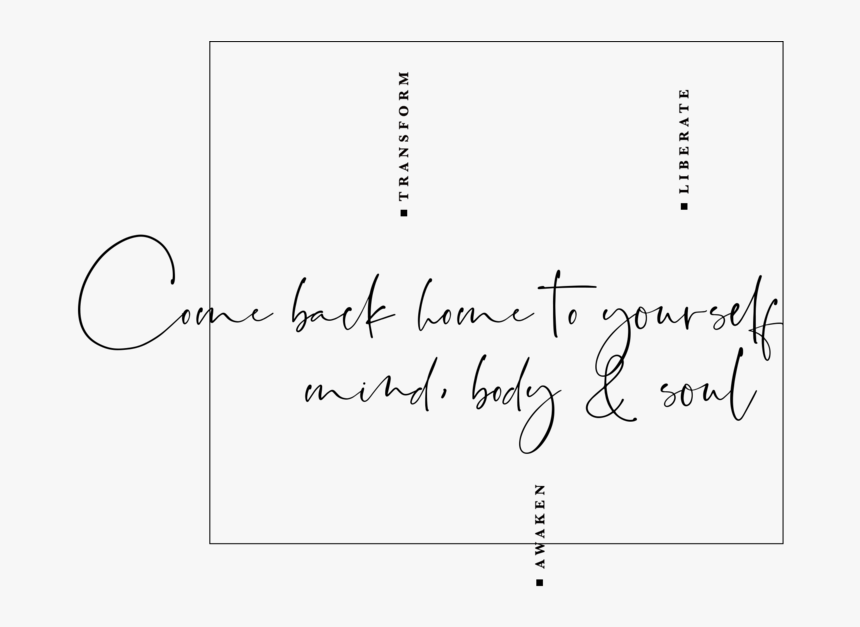 TRANSFORM
LIBERATE
Come back home to yourself
mind, body & soul
AWAKEN